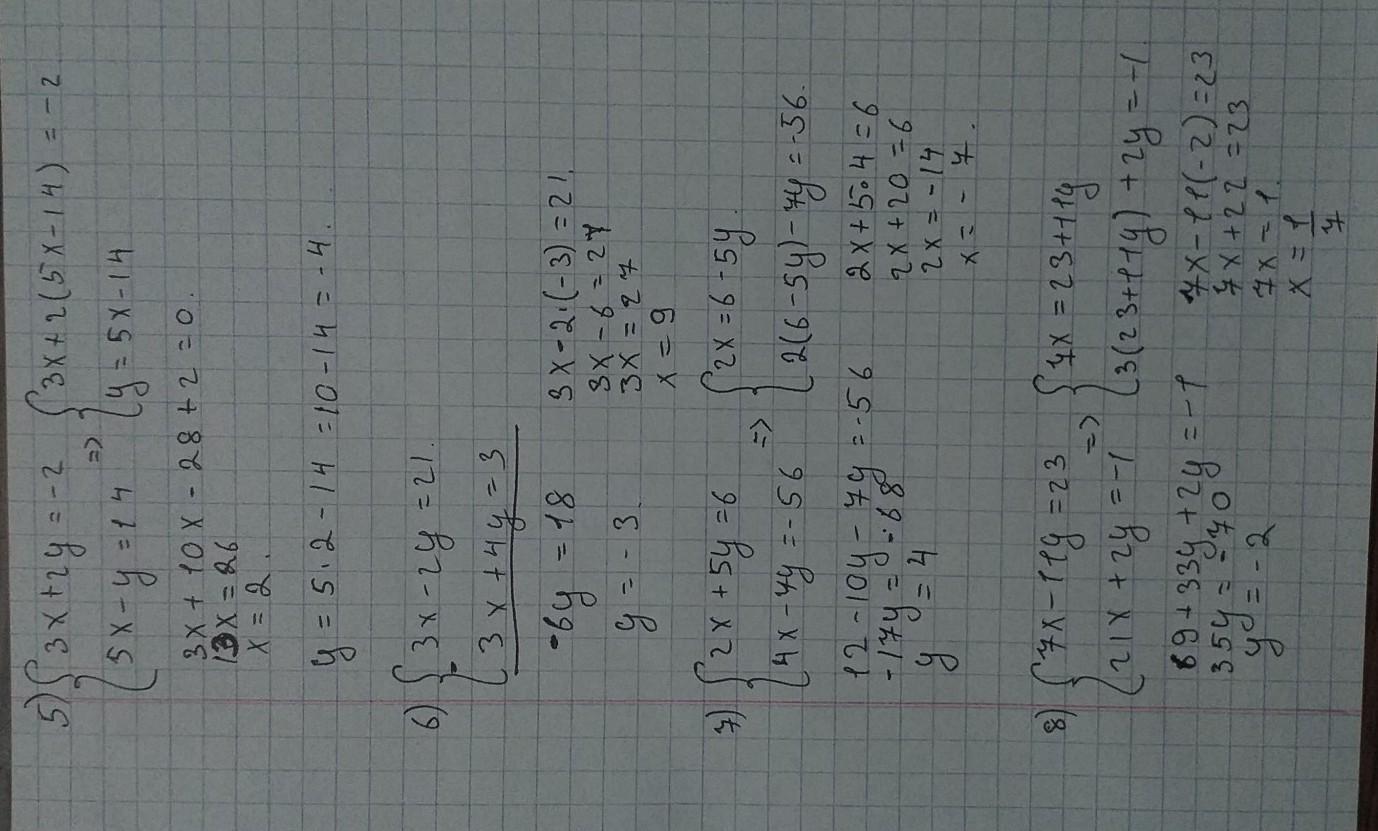 5) { 3x + 2y = -2 => { 3x + 2(5x - 14) = -2
5x - y = 14 y = 5x - 14
3x + 10x - 28 + 2 = 0.
13x = 26
x = 2.
y = 5·2 - 14 = 10 - 14 = -4.
6) { 3x - 2y = 21.
3x + 4y = 3
-6y = 18
y = -3.
3x - 2·(-3) = 21.
3x - 6 = 27
3x = 27
x = 9
7) { 2x + 5y = 6 => { 2x = 6 - 5y.
4x - 7y = -56 2(6 - 5y) - 7y = -56.
12 - 10y - 7y = -56
-17y = -68
y = 4
2x + 5·4 = 6
2x + 20 = 6
2x = -14
x = -7.
8) { 7x - 11y = 23 => { 7x = 23 + 11y
21x + 2y = -1 3(23 + 11y) + 2y = -1.
69 + 33y + 2y = -1
35y = -70
y = -2
7x - 11(-2) = 23
7x + 22 = 23
7x = 1.
x = 1/7